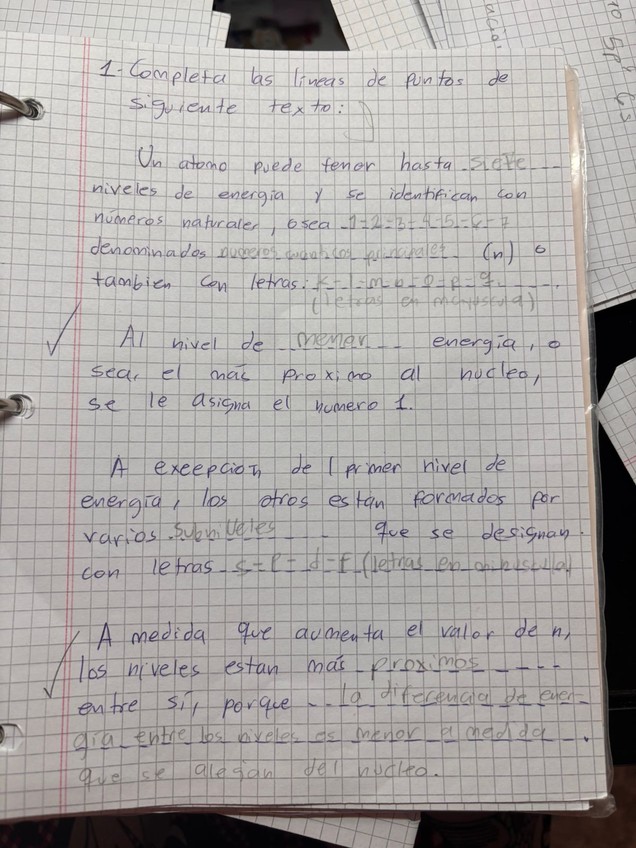 1-Completa las lineas de puntos de
siguiente texto:
Un atomo puede tener hasta siete
niveles de energia y se identifican con
números naturales, o sea 1-2-3-4-5-6-7
denominados numeros cuanticos principales (n) o
tambien con letras: K-l-m-n-o-p-q.
(letras en mayuscula)
Al nivel de menor energía, o
sea, el más proximo al nucleo,
se le asigna el numero 1.
A excepcion del primer nivel de
energía, los otros estan formados por
varios subniveles que se designan
con letras s-p-d-f (letras en minuscula)
A medida que aumenta el valor de n,
los niveles estan más proximos
entre sí, porque la diferencia de ener-
gia entre los niveles es menor a medida
que se alejan del nucleo.